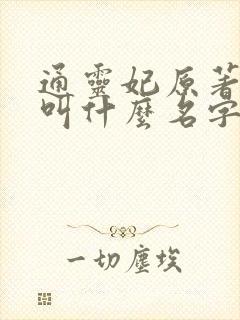 通靈妃原著
叫什麼名字
一切塵埃